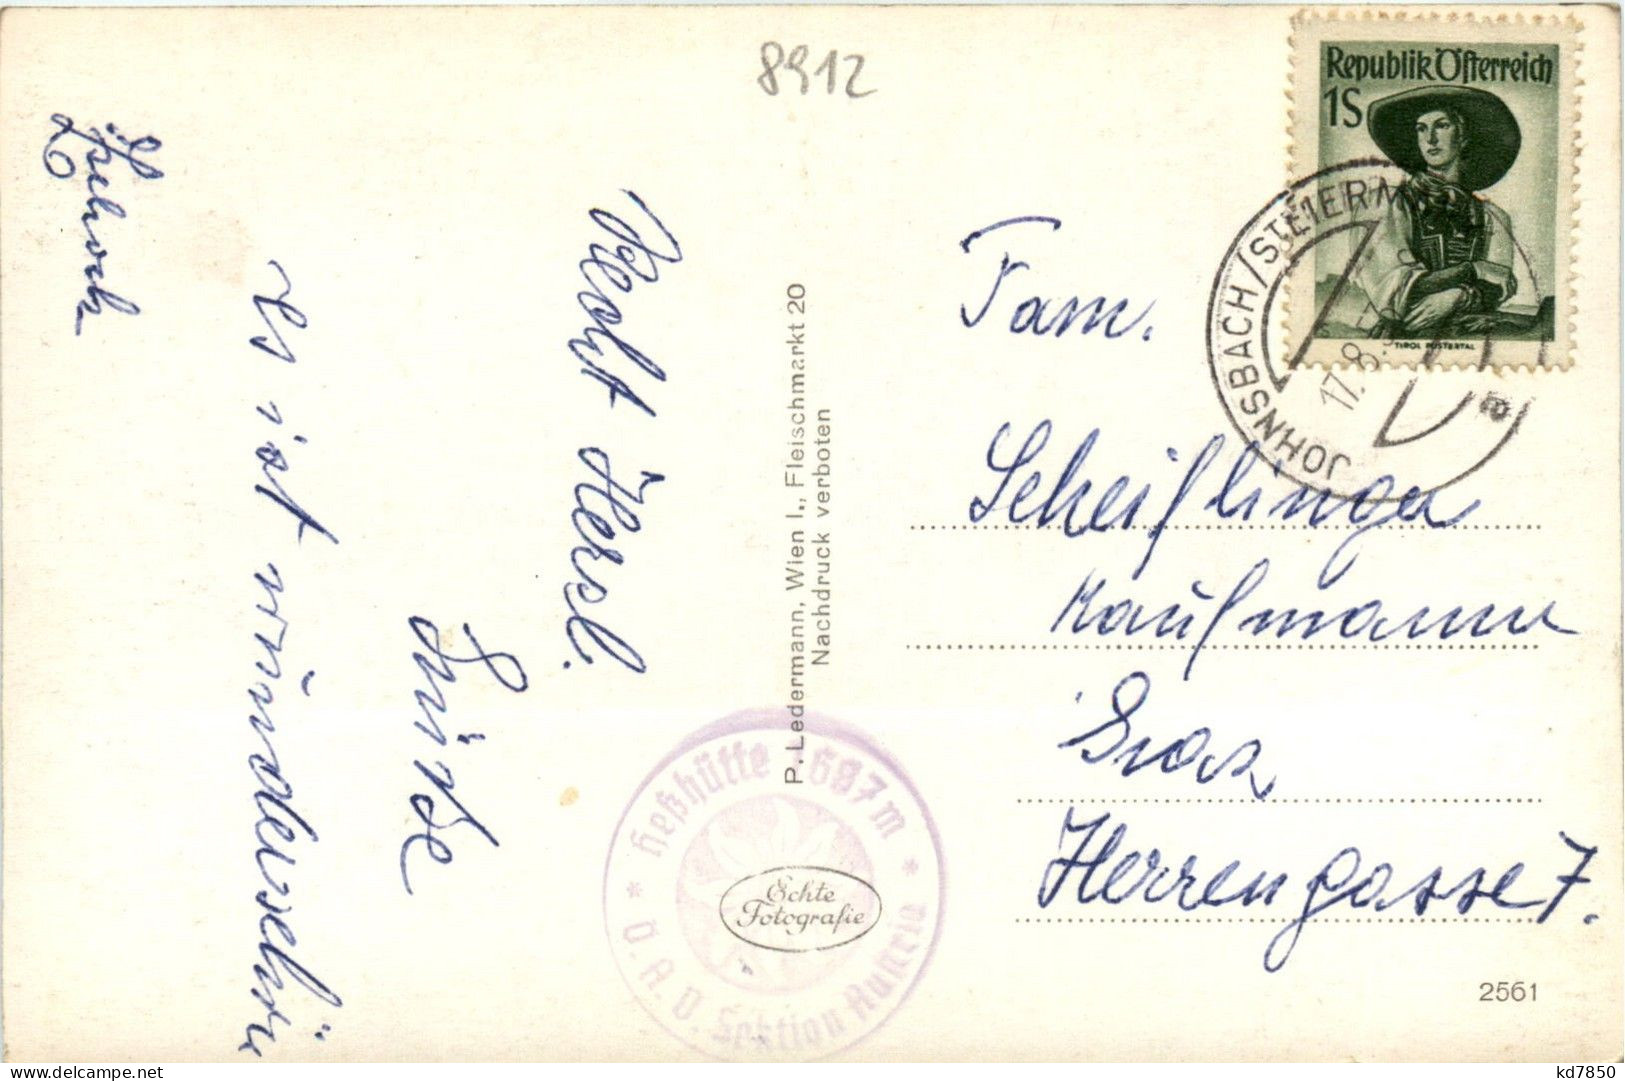 8912
Republik Österreich
1S
TIROL PUSTERTAL
JOHNSBACH/STEIERM
17.8.
a
Recht
Grüße
es ist wunderschön
P. Ledermann, Wien I., Fleischmarkt 20
Nachdruck verboten
Heßhütte 1687m
Ö.A.V. Sektion Austria
Echte
Fotografie
Fam.
Scheiflinger
Kaufmann
Graz
Herrengasse 7.
2561
kd7850